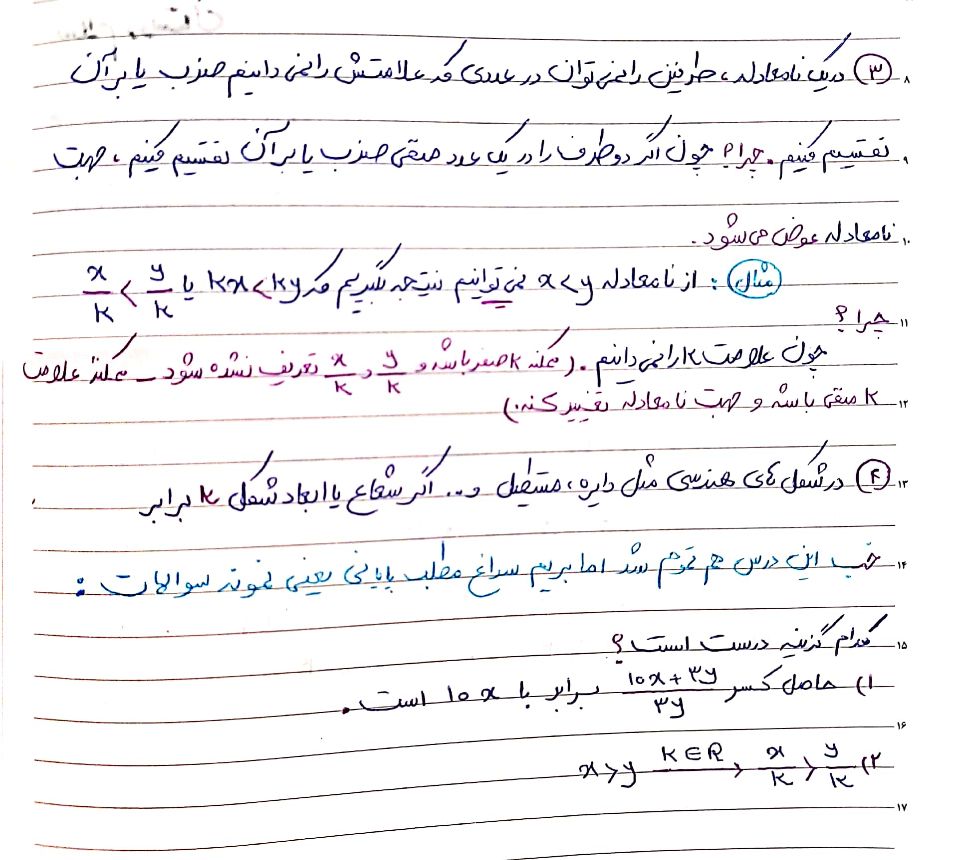 ۳ در یک نامعادله، طرفین را نمی توان در عددی که علامتش را نمی دانیم ضرب یا بر آن
۸
تقسیم کنیم. چرا؟ چون اگر دو طرف را در یک عدد منفی ضرب یا بر آن تقسیم کنیم، جهت
۹
نامعادله عوض می شود.
۱۰
مثال: از نامعادله x<y نمی توانیم نتیجه بگیریم که kx<ky یا x/k < y/k
چرا؟
۱۱
چون علامت k را نمی دانیم. (ممکنه k صفر باشه و y/k و x/k تعریف نشده شود – ممکنه علامت
k منفی باشه و جهت نامعادله تغییر کنه.)
۱۲
۴ در شکل های هندسی مثل دایره، مستطیل و... اگر شعاع یا ابعاد شکل k برابر
۱۳
خب این درس هم تموم شد اما بریم سراغ مطلب پایانی یعنی نمونه سوالات:
۱۴
کدام گزینه درست است؟
۱۵
۱) حاصل کسر (10x+3y)/3y برابر با 10x است.
۱۶
۲) x>y k∈R → x/k > y/k
۱۷